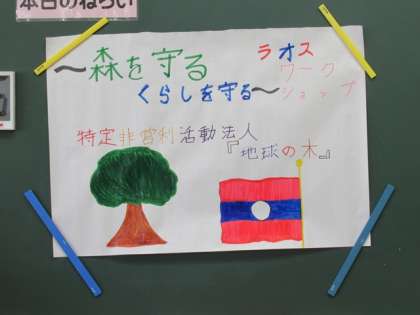 本日のねらい
～森を守る
くらしを守る～
ラオス
ワーク
ショップ
特定非営利活動法人
『地球の木』